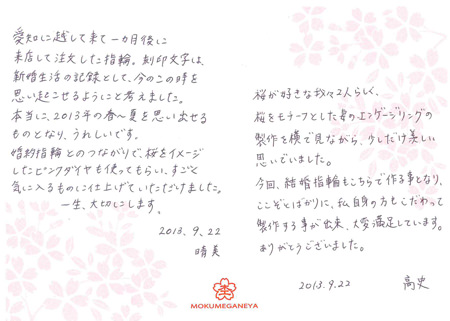 愛知に越して来て一カ月後に
来店して注文した指輪。刻印文字は、
新婚生活の記録として、今のこの時を
思い起こせるようにと考えました。
本当に、2013年の春〜夏を思い出せる
ものとなり、うれしいです。
婚約指輪とのつながりで、桜をイメージ
したピンクダイヤも使ってもらい、すごく
気に入るものに仕上げていただけました。
一生、大切にします。
2013.9.22
晴美
桜が好きな我々2人らしく、
桜をモチーフとした妻のエンゲージリングの
製作を横で見ながら、少しだけ羨しい
思いでいました。
今回、結婚指輪もこちらで作る事となり、
ここぞとばかりに、私自身の方もこだわって
製作する事が出来、大変満足しています。
ありがとうございました。
2013.9.22 高史
MOKUMEGANEYA